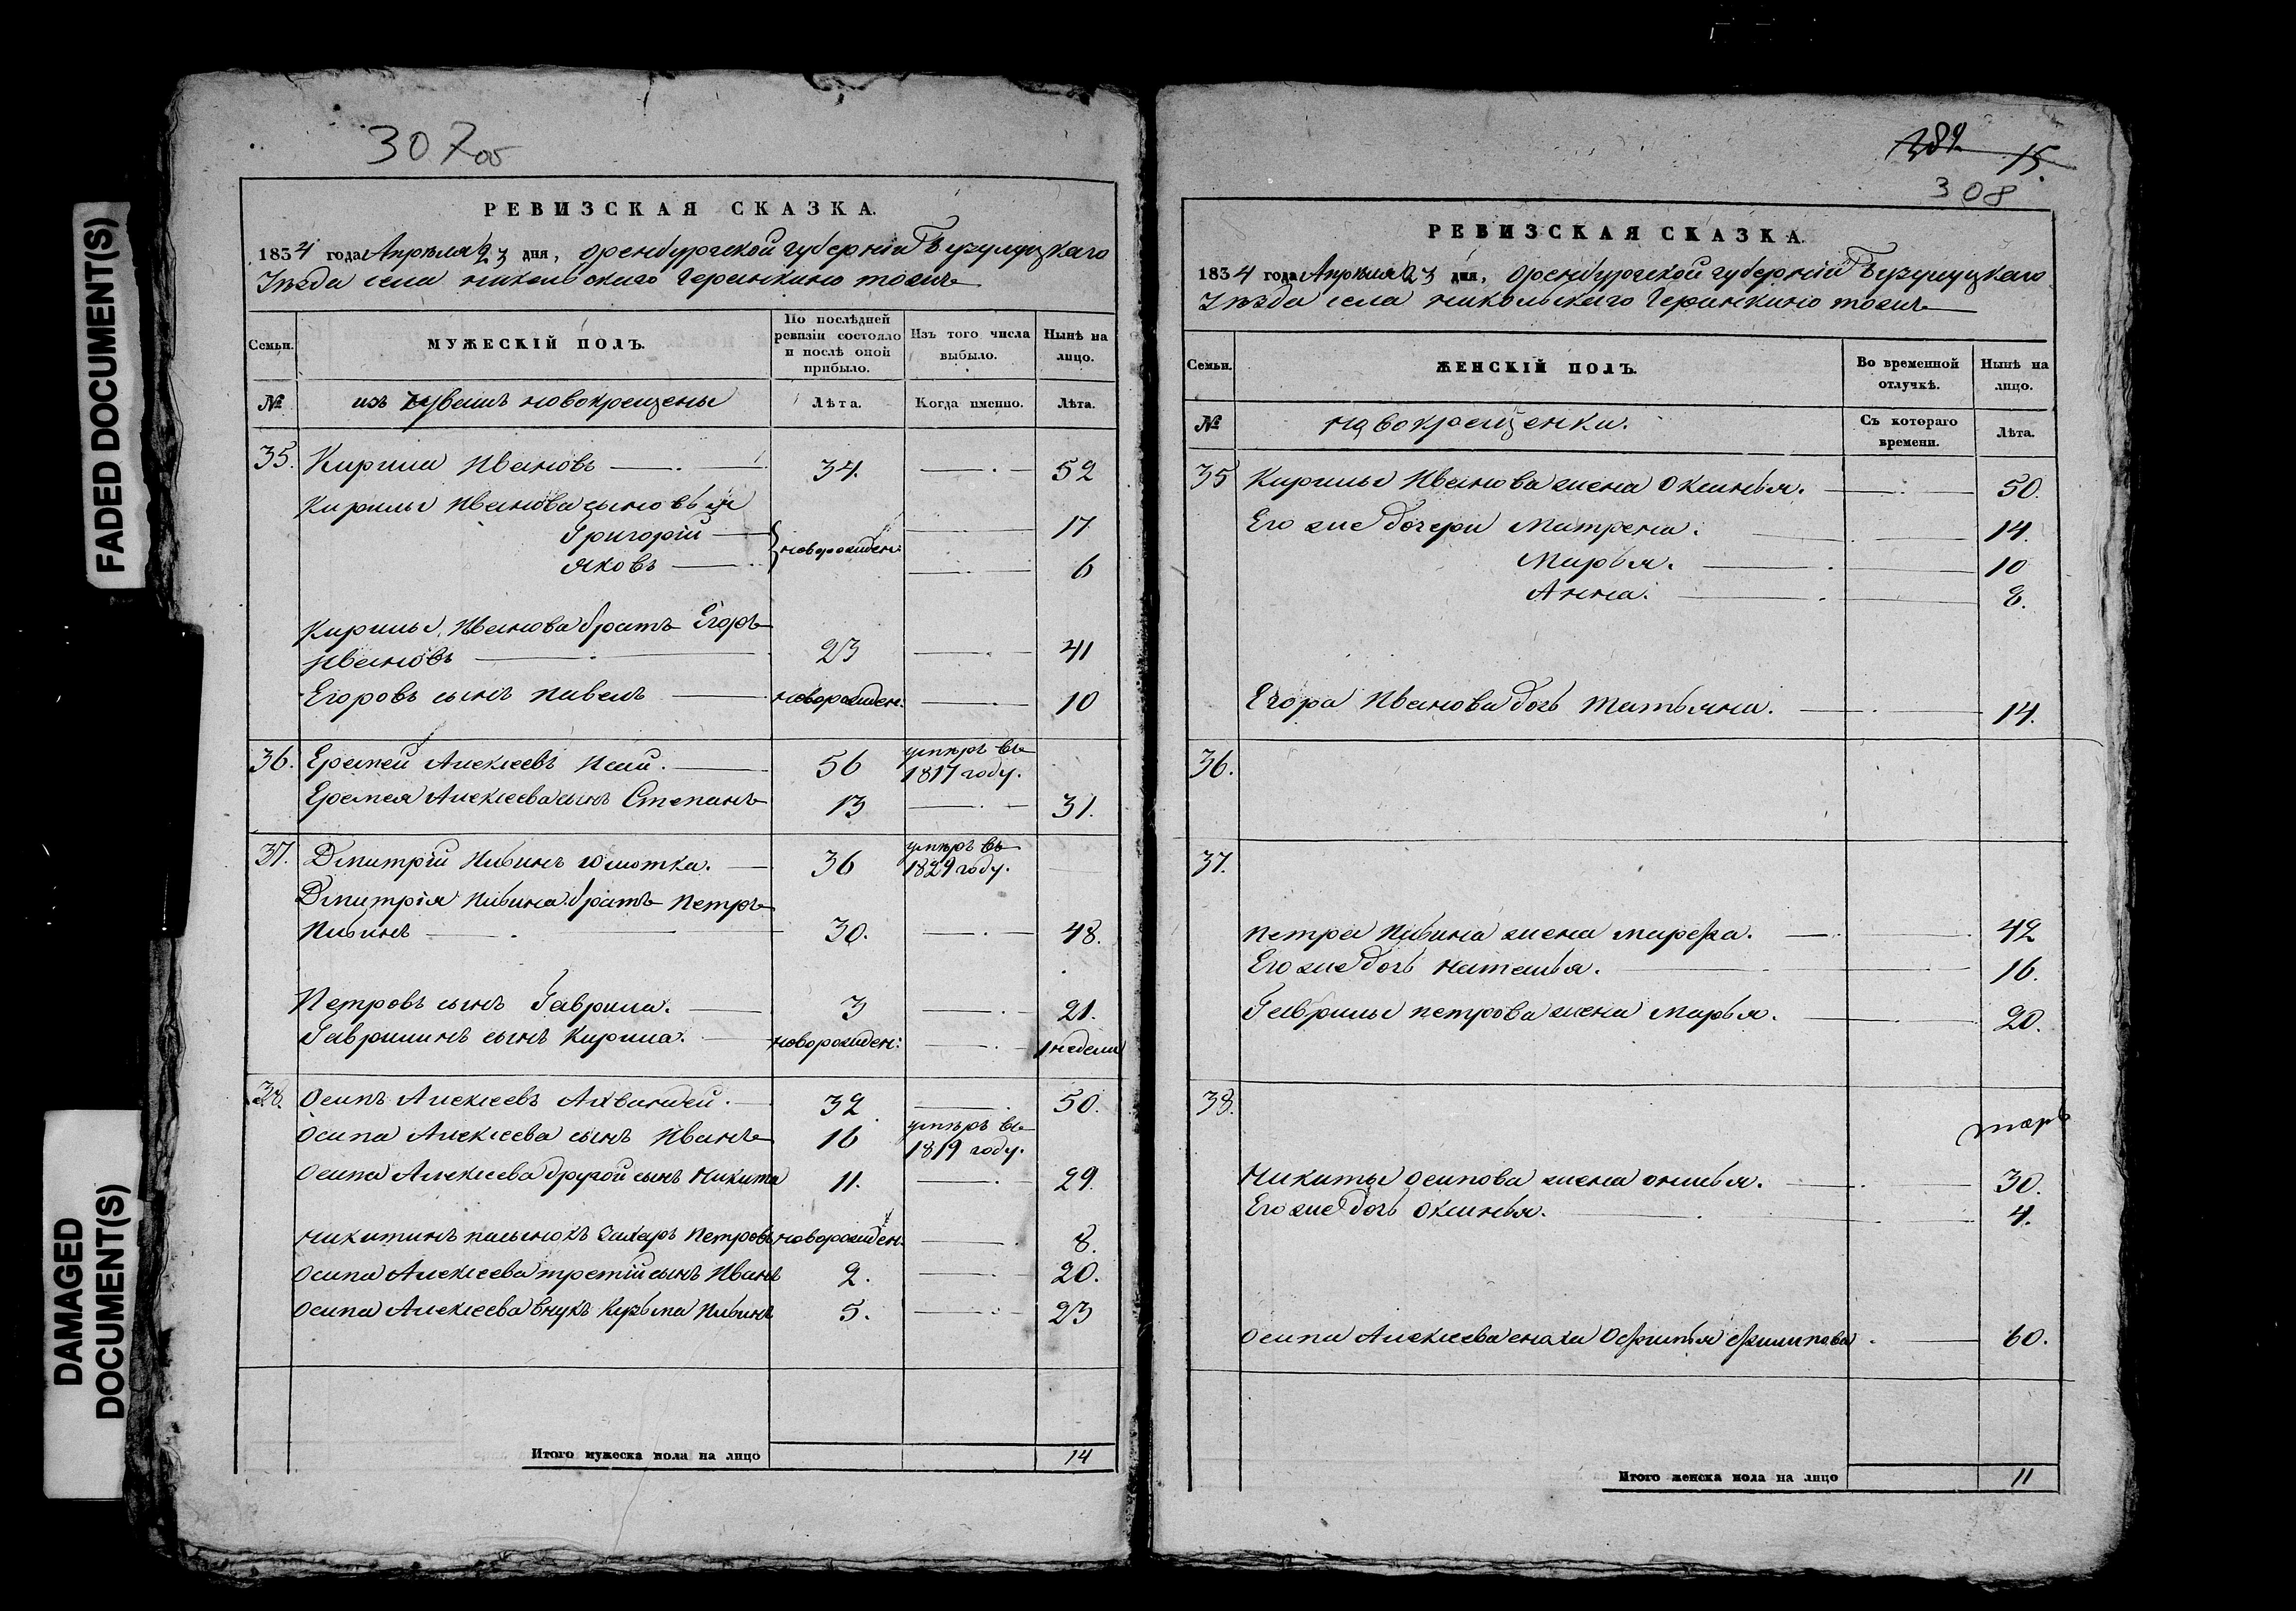 FADED DOCUMENT(S)
DAMAGED
DOCUMENT(S)
307об
РЕВИЗСКАЯ СКАЗКА.
1834 года Апрѣля 23 дня, Оренбургской губерніи Бузулуцкаго
Уѣзда села никольскаго Черинкино тожъ
Семьи.
МУЖЕСКІЙ ПОЛЪ.
По послѣдней ревизіи состояло и послѣ оной прибыло.
Изъ того числа выбыло.
Нынѣ на лицо.
№
изъ Чувашъ новокрещены
Лѣта.
Когда именно.
Лѣта.
35. Кирила Ивановъ 34. 52
Кирилы Иванова сыновья
Григорій 17
новорожден:
Яковъ 6
Кирилы Иванова братъ Егоръ
Ивановъ 23 41
Егоровъ сынъ павелъ новорожден. 10
36. Еремей Алексеевъ 56 умѣръ въ
1817 году.
Еремея Алексеева сынъ Степанъ 13 31.
37. Дмитрій 36 умѣръ въ
1829 году.
Дмитрія братъ Петръ
30. 48.
Петровъ сынъ Гаврила. 3 21.
Гаврилинъ сынъ Кирила. новорожден: 1 недели
38. Осипъ Алексеевъ 32 50.
Осипа Алексеева сынъ Иванъ 16 умѣръ въ
1819 году.
Осипа Алексеева другой сынъ Никита 11. 29
никитинъ Захаръ Петровъ новорожден. 8.
Осипа Алексеева третій сынъ Иванъ 2. 20.
Осипа Алексеева внукъ Кузьма 5. 23
Итого мужеска пола на лицо 14
15.
308
РЕВИЗСКАЯ СКАЗКА.
1834 года Апрѣля 23 дня, Оренбургской губерніи Бузулуцкаго
Уѣзда села никольскаго Черинкино тожъ
Семьи.
ЖЕНСКІЙ ПОЛЪ.
Во временной отлучкѣ.
Нынѣ на лицо.
№
новокрещенки.
Съ котораго времени.
Лѣта.
35 Кирилы Иванова жена Оксинья. 50.
Его же дочери Матрена. 14
Марья. 10
Анна. 8.
Егора Иванова дочь татьяна. 14.
36.
37.
петра жена марфа. 42
Его же дочь наталья. 16.
Гаврилы петрова жена марья. 20.
38.
Никиты осипова жена 30.
Его же дочь Оксинья. 4.
осипа Алексеева сноха филипова. 60.
Итого женска пола на лицо 11